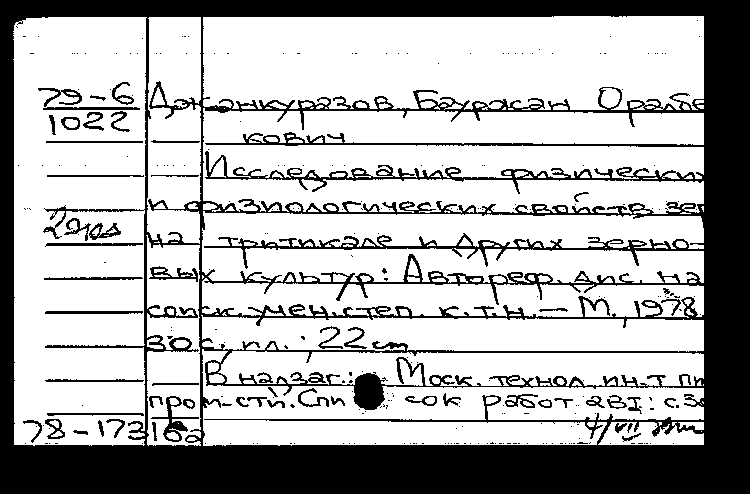 79-6 Джанкуразов, Бауржан Оралбе
1022 кович
Исследование физических
и физиологических свойств зер
на тритикале и других зерно-
вых культур: Автореф. дис. на
соиск. учен. степ. к.т.н. – М., 1978.
30 с., ил.; 22 см.
В надзаг.: Моск. технол. ин-т пи
пром-сти. Список работ авт: с.30
78-17316а